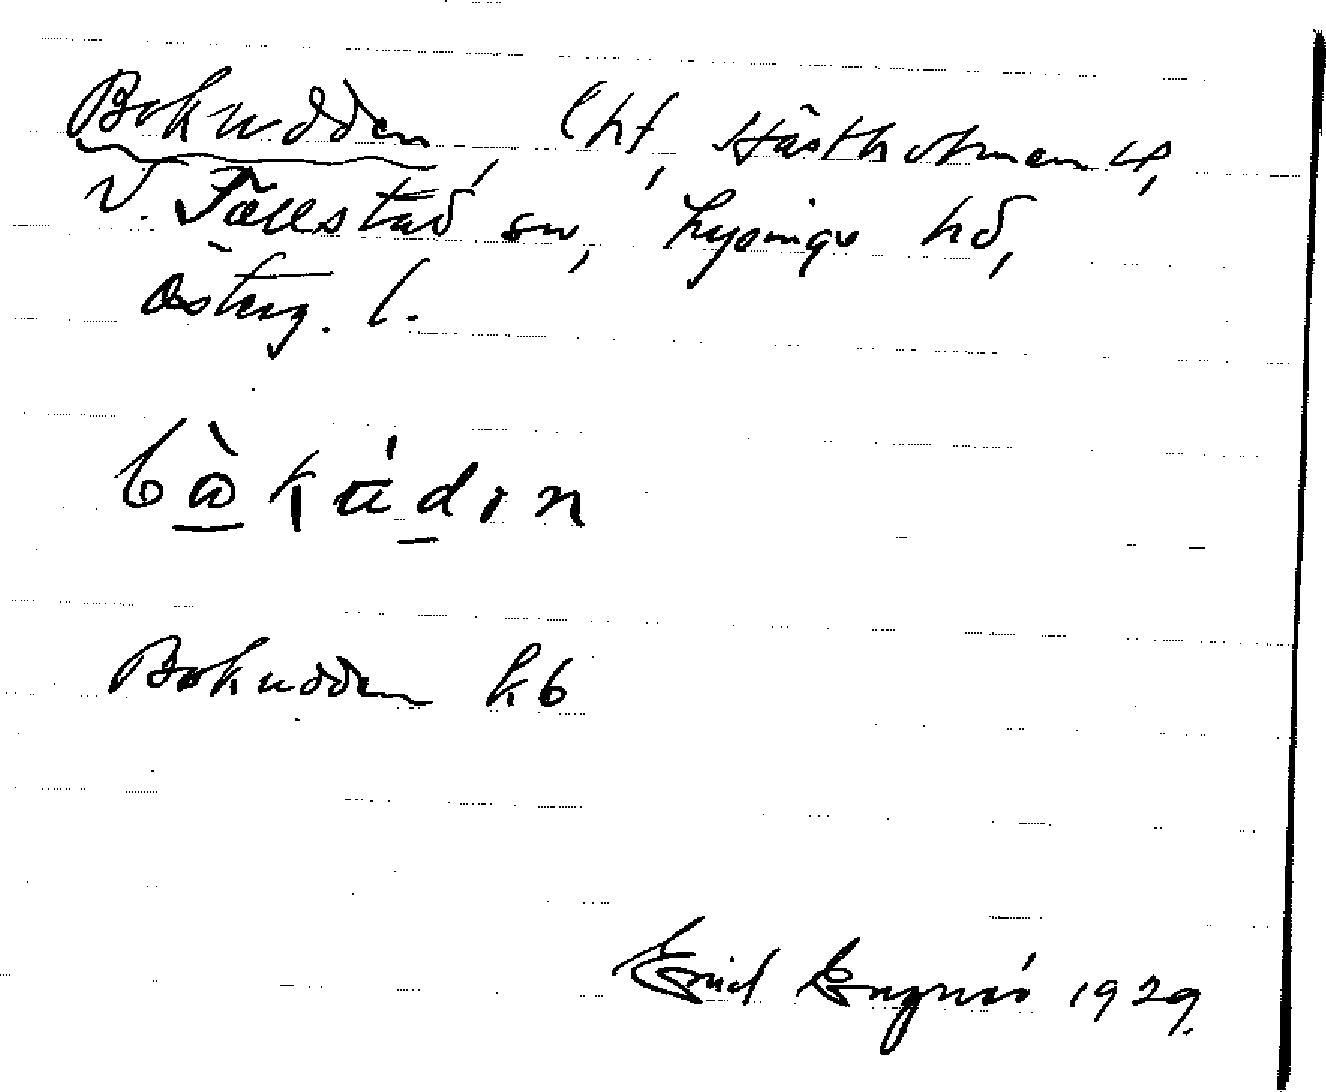 Bokudden, lht, Hästholmen 4,
V. Tollstad sn, Lysings hd,
Österg. l.
bàkúdɩn
Bokudden kb
1929.